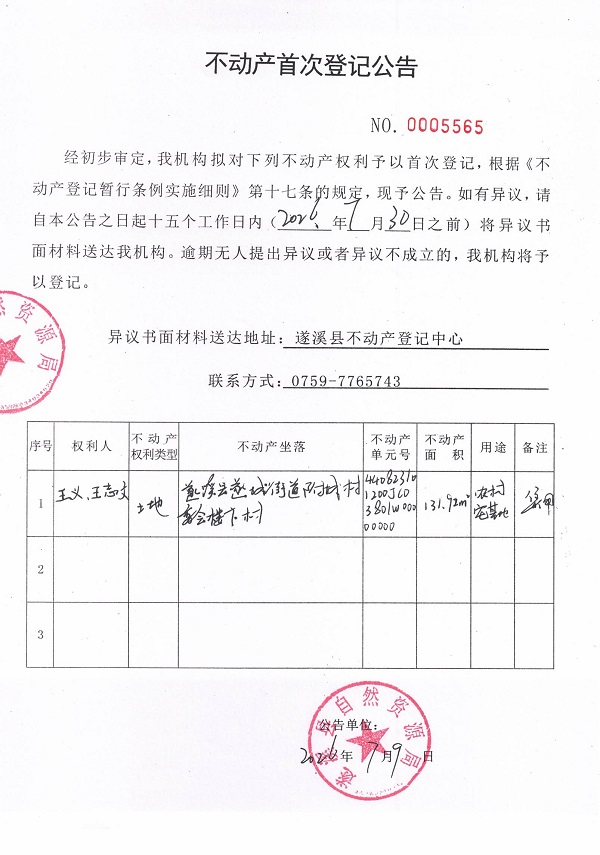 不动产首次登记公告
NO. 0005565
经初步审定，我机构拟对下列不动产权利予以首次登记，根据《不
动产登记暂行条例实施细则》第十七条的规定，现予公告。如有异议，请
自本公告之日起十五个工作日内（2026年7月30日之前）将异议书
面材料送达我机构。逾期无人提出异议或者异议不成立的，我机构将予
以登记。
自然资源局
异议书面材料送达地址：遂溪县不动产登记中心
联系方式：0759-7765743
序号 权利人 不动产权利类型 不动产坐落 不动产单元号 不动产面积 用途 备注
1 王义、王志 土地 遂溪县遂城街道附城村委会 村 44082310 1200JC0 3801W000 00000 131.92㎡ 农村宅基地
2
3
遂溪县自然资源局
公告单位：
2026年7月9日